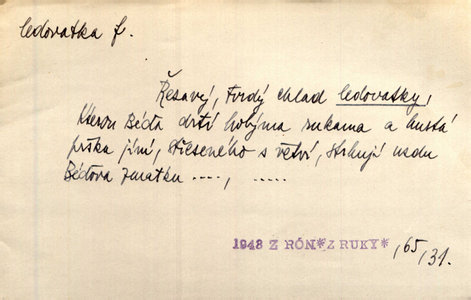 ledovatka f.
Řezavý, tvrdý chlad ledovatky,
kterou Béďa drtí holýma rukama a hustá
prška jíní, střeseného s větví, strhují vodu
Béďova zmatku ...., .....
1948 Z RÓN*Z RUKY* , 65, 31.